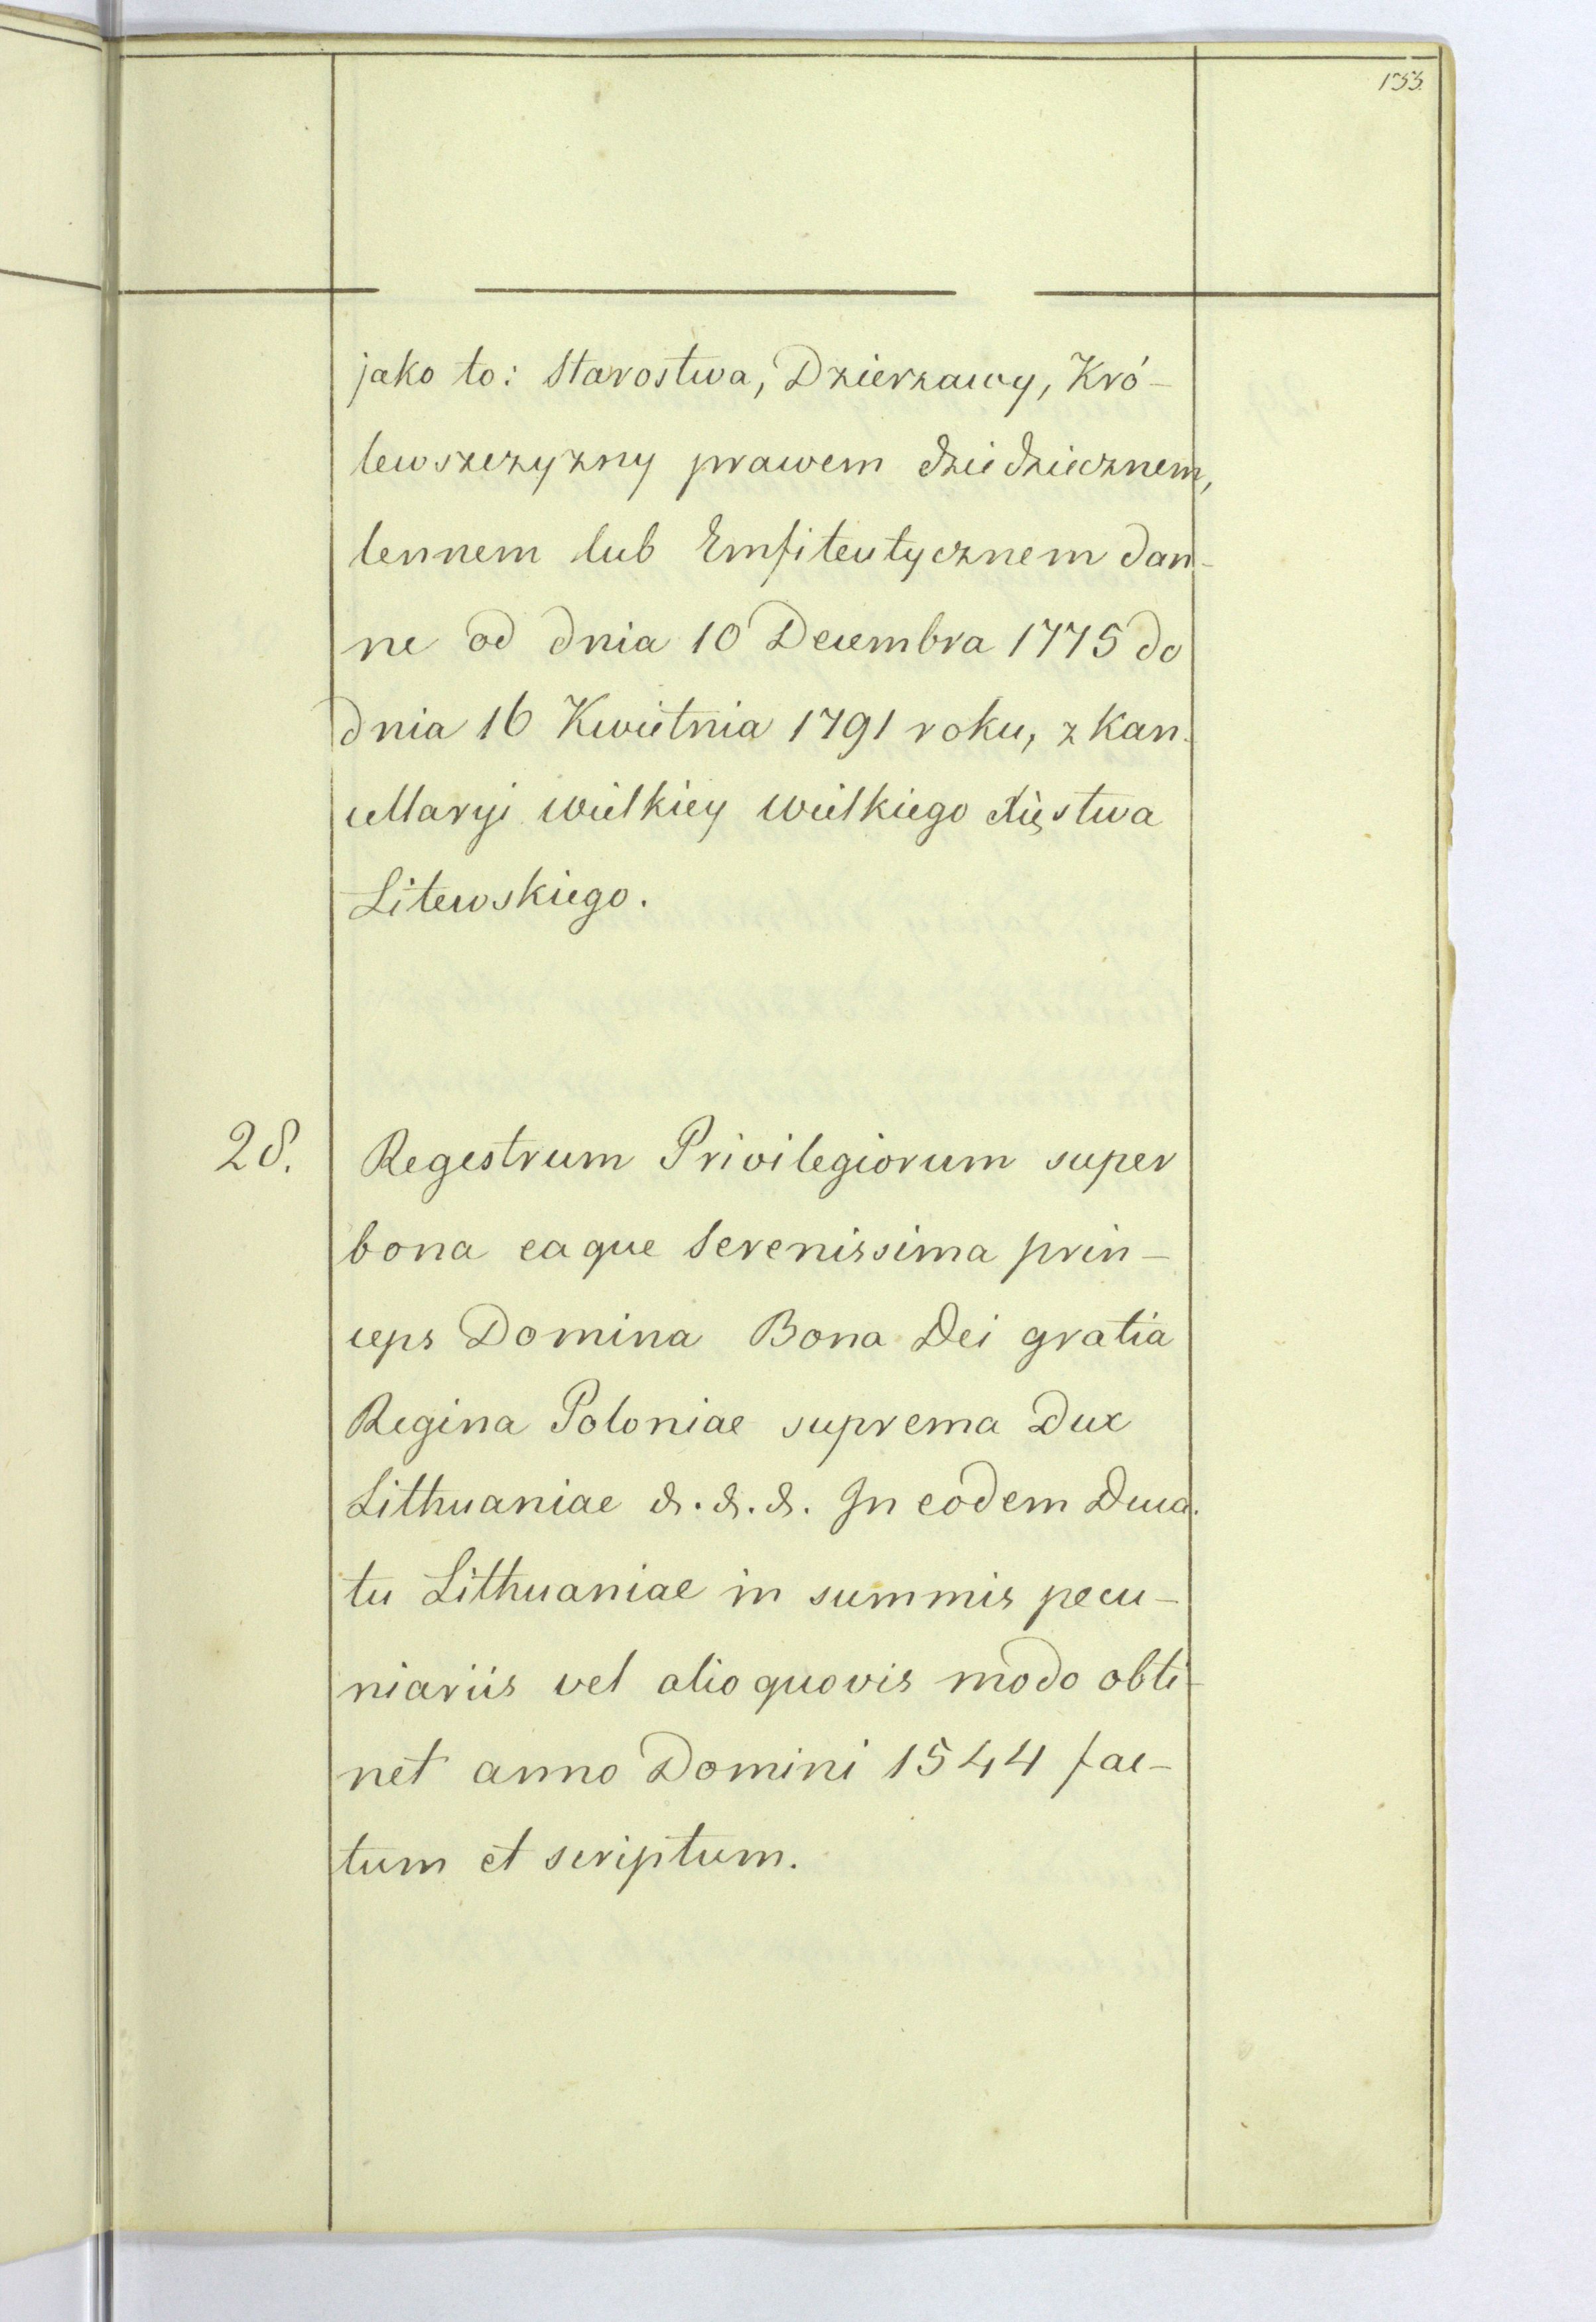 153.
jako to: Starostwa, Dzierzawy, Kró-
lewszczyzny prawem dziedzicznem,
lennem lub Emfiteutycznem dan-
ne od dnia 10 Decembra 1775 do
dnia 16 Kwietnia 1791 roku, z Kan-
cellaryi wielkiey wielkiego Xięstwa
Litewskiego.
28. Regestrum Privilegiorum super
bona eaque Serenissima prin-
ceps Domina Bona Dei gratia
Regina Poloniae suprema Dux
Lithuaniae &.&.&. In eodem Duca-
tu Lithuaniae in summis pecu-
niariis vel alio quovis modo obti-
net anno Domini 1544 fac-
tum et scriptum.